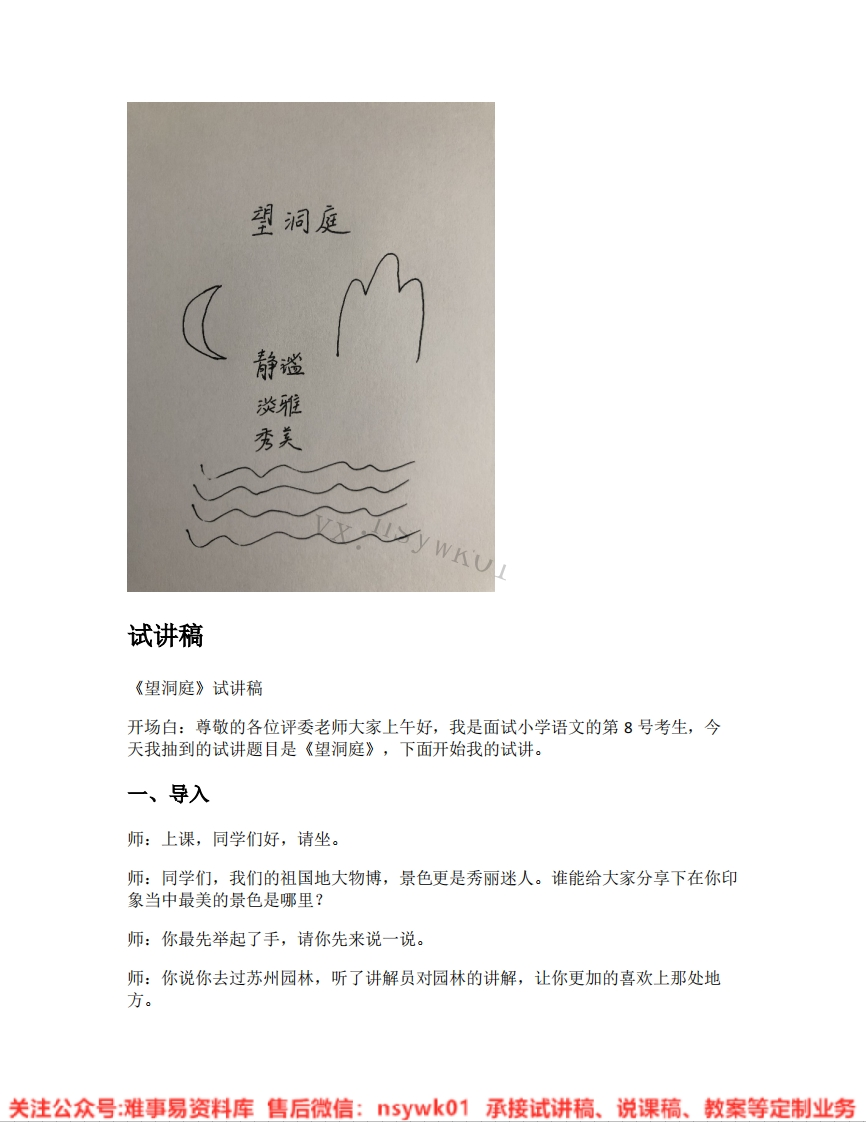 望洞庭
静谧
淡雅
秀美
vx:nsywk01
试讲稿
《望洞庭》试讲稿
开场白：尊敬的各位评委老师大家上午好，我是面试小学语文的第 8 号考生，今
天我抽到的试讲题目是《望洞庭》，下面开始我的试讲。
一、导入
师：上课，同学们好，请坐。
师：同学们，我们的祖国地大物博，景色更是秀丽迷人。谁能给大家分享下在你印
象当中最美的景色是哪里？
师：你最先举起了手，请你先来说一说。
师：你说你去过苏州园林，听了讲解员对园林的讲解，让你更加的喜欢上那处地
方。
关注公众号:难事易资料库 售后微信：nsywk01 承接试讲稿、说课稿、教案等定制业务